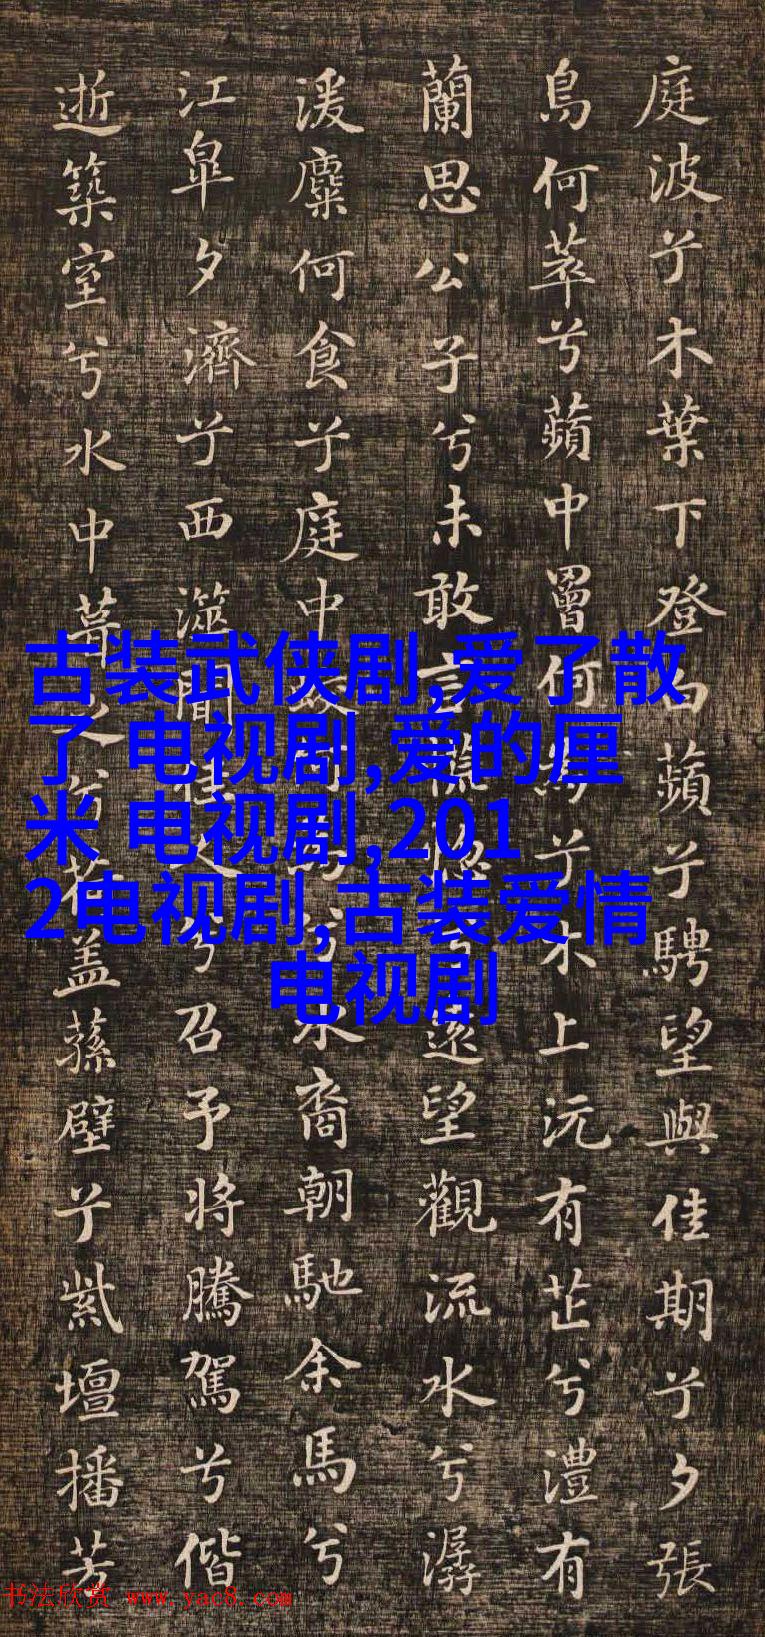 庭波兮木葉下登白蘋兮騁望與佳期兮夕張
鳥何萃兮蘋中罾何為兮木上沅有芷兮澧有
蘭思公子兮未敢言慌惚兮遠望觀流水兮潺
湲麋何食兮庭中蛟何為兮水裔朝馳余馬兮
江皋夕濟兮西澨聞佳人兮召予將騰駕兮偕
逝築室兮水中葺之兮荷蓋蓀壁兮紫壇播芳
古装武侠剧,爱了散
了 电视剧,爱的厘
米 电视剧,201
2电视剧,古装爱情
电视剧
书法欣赏 www.yac8.com